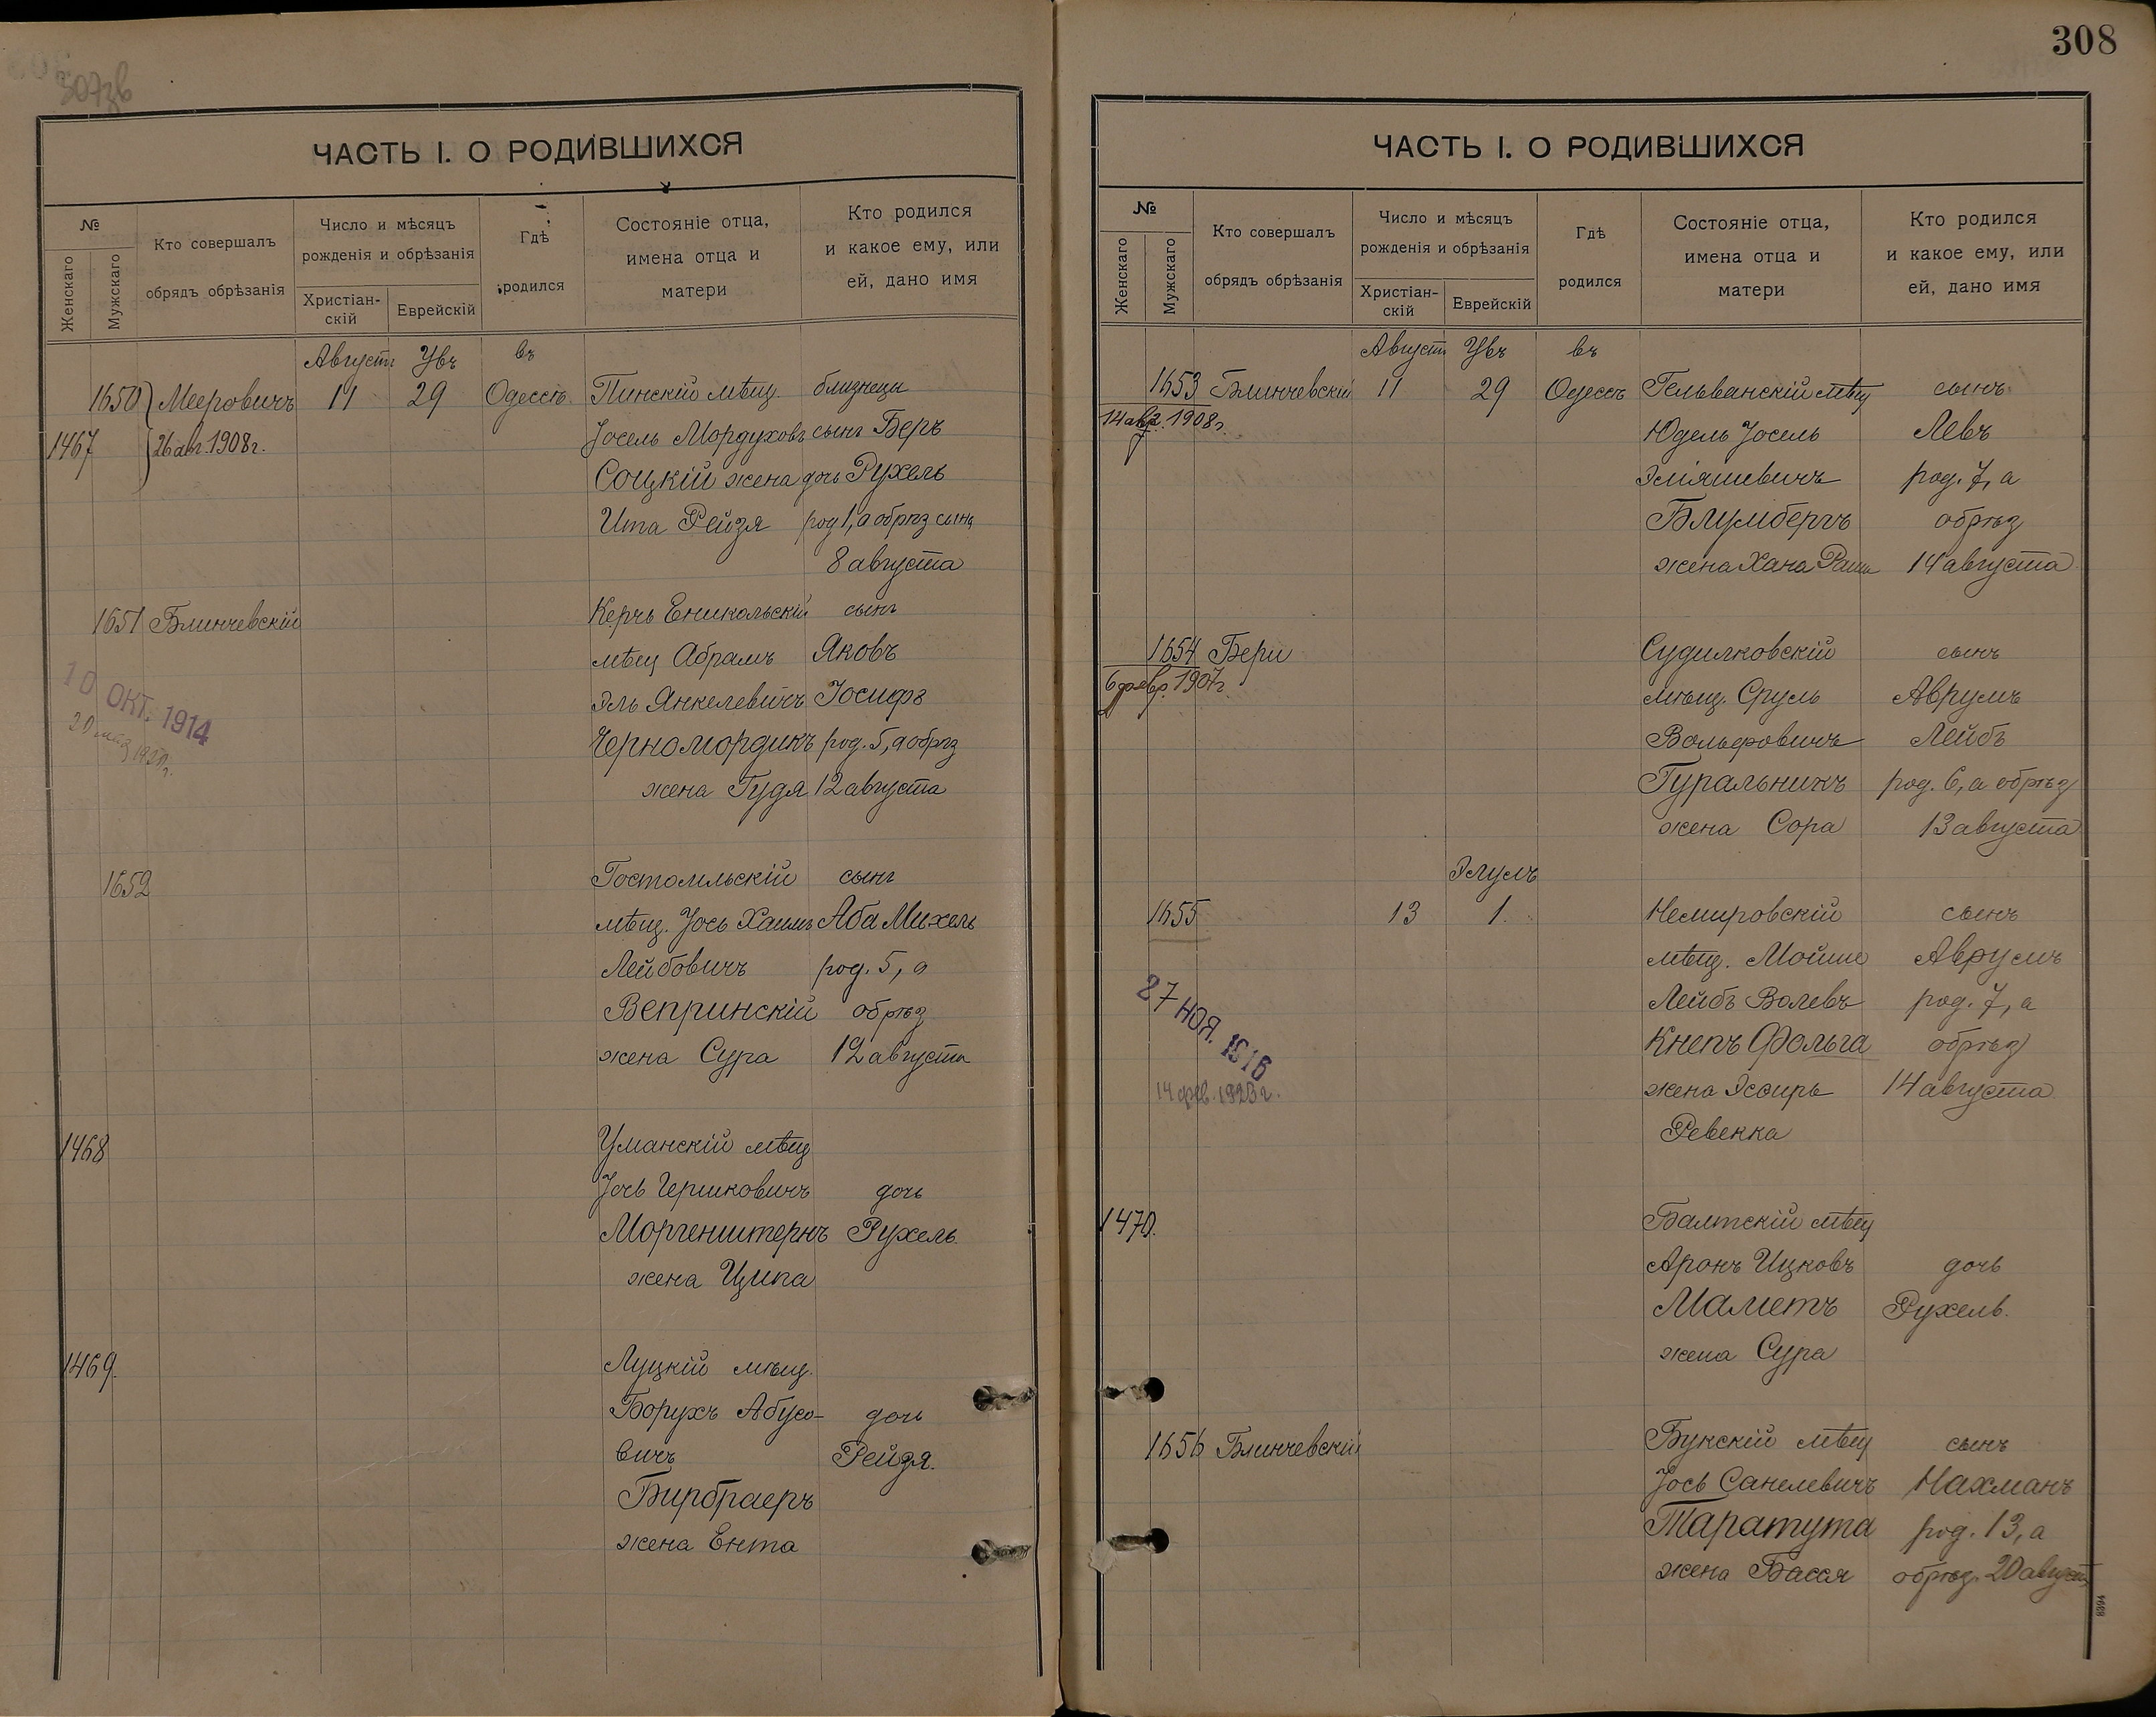 307зв
ЧАСТЬ I. О РОДИВШИХСЯ
№
Женскаго
Мужскаго
Кто совершалъ
обрядъ обрѣзанія
Число и мѣсяцъ
рожденія и обрѣзанія
Христіан-
скій
Еврейскій
Гдѣ
родился
Состояніе отца,
имена отца и
матери
Кто родился
и какое ему, или
ей, дано имя
Августъ Увъ въ
1650 Мееровичъ 11 29 Одессѣ Пинскій мѣщ. близнецы
1467 26 авг. 1908 г. Іосель Мордуховъ сынъ Беръ
Соцкій жена дочь Рухель
Ита Рейзя род 1, а обрѣз сынъ
8 августа
1651 Блинчевскій Керчь Еникольскій сынъ
мѣщ Абрамъ Яковъ
10 ОКТ. 1914
Эль Янкелевичъ Іосифъ
Черномордикъ род. 5, а обрѣз
жена Гудя 12 августа
1652 Гостомльскій сынъ
мѣщ. Іось Хаимъ Аба Михель
Лейбовичъ род. 5, а
Вепринскій обрѣз
жена Сура 12 августа
1468 Уманскій мѣщ
Іось Гершковичъ дочь
Моргенштернъ Рухель
жена Ципа
1469. Луцкій мѣщ.
Борухъ Абусо- дочь
вичъ Рейзя.
Бирбраеръ
жена Ента
308
ЧАСТЬ I. О РОДИВШИХСЯ
№
Женскаго
Мужскаго
Кто совершалъ
обрядъ обрѣзанія
Число и мѣсяцъ
рожденія и обрѣзанія
Христіан-
скій
Еврейскій
Гдѣ
родился
Состояніе отца,
имена отца и
матери
Кто родился
и какое ему, или
ей, дано имя
Августъ Увъ въ
1653 Блинчевскій 11 29 Одессѣ Гельванскій мѣщ сынъ
1908 г. Юдель Іосель Левъ
Эліяшевичъ род. 7, а
Блумбергъ обрѣз
жена Хана 14 августа
1654 Бери Судилковскій сынъ
6 февр. 1907 г. мѣщ. Сруль Аврумъ
Вольфовичъ Лейбъ
Гуральникъ род. 6, а обрѣз
жена Сора 13 августа
Элулъ
1655 13 1. Немировскій сынъ
мѣщ. Мойше Аврумъ
Лейбъ Волевъ род. 7, а
27 НОЯ. 1916
Кнепъ Фольга обрѣз
14 фев. 1923 г. жена Эсфирь 14 августа
Ревекка
1470. Балтскій мѣщ
Аронъ Ицковъ дочь
Маметъ Рухель.
жена Сура
1656 Блинчевскій Букскій мѣщ сынъ
Іось Санелевичъ Нахманъ
Таратута род. 13, а
жена Бася обрѣз. 20 августа
8394